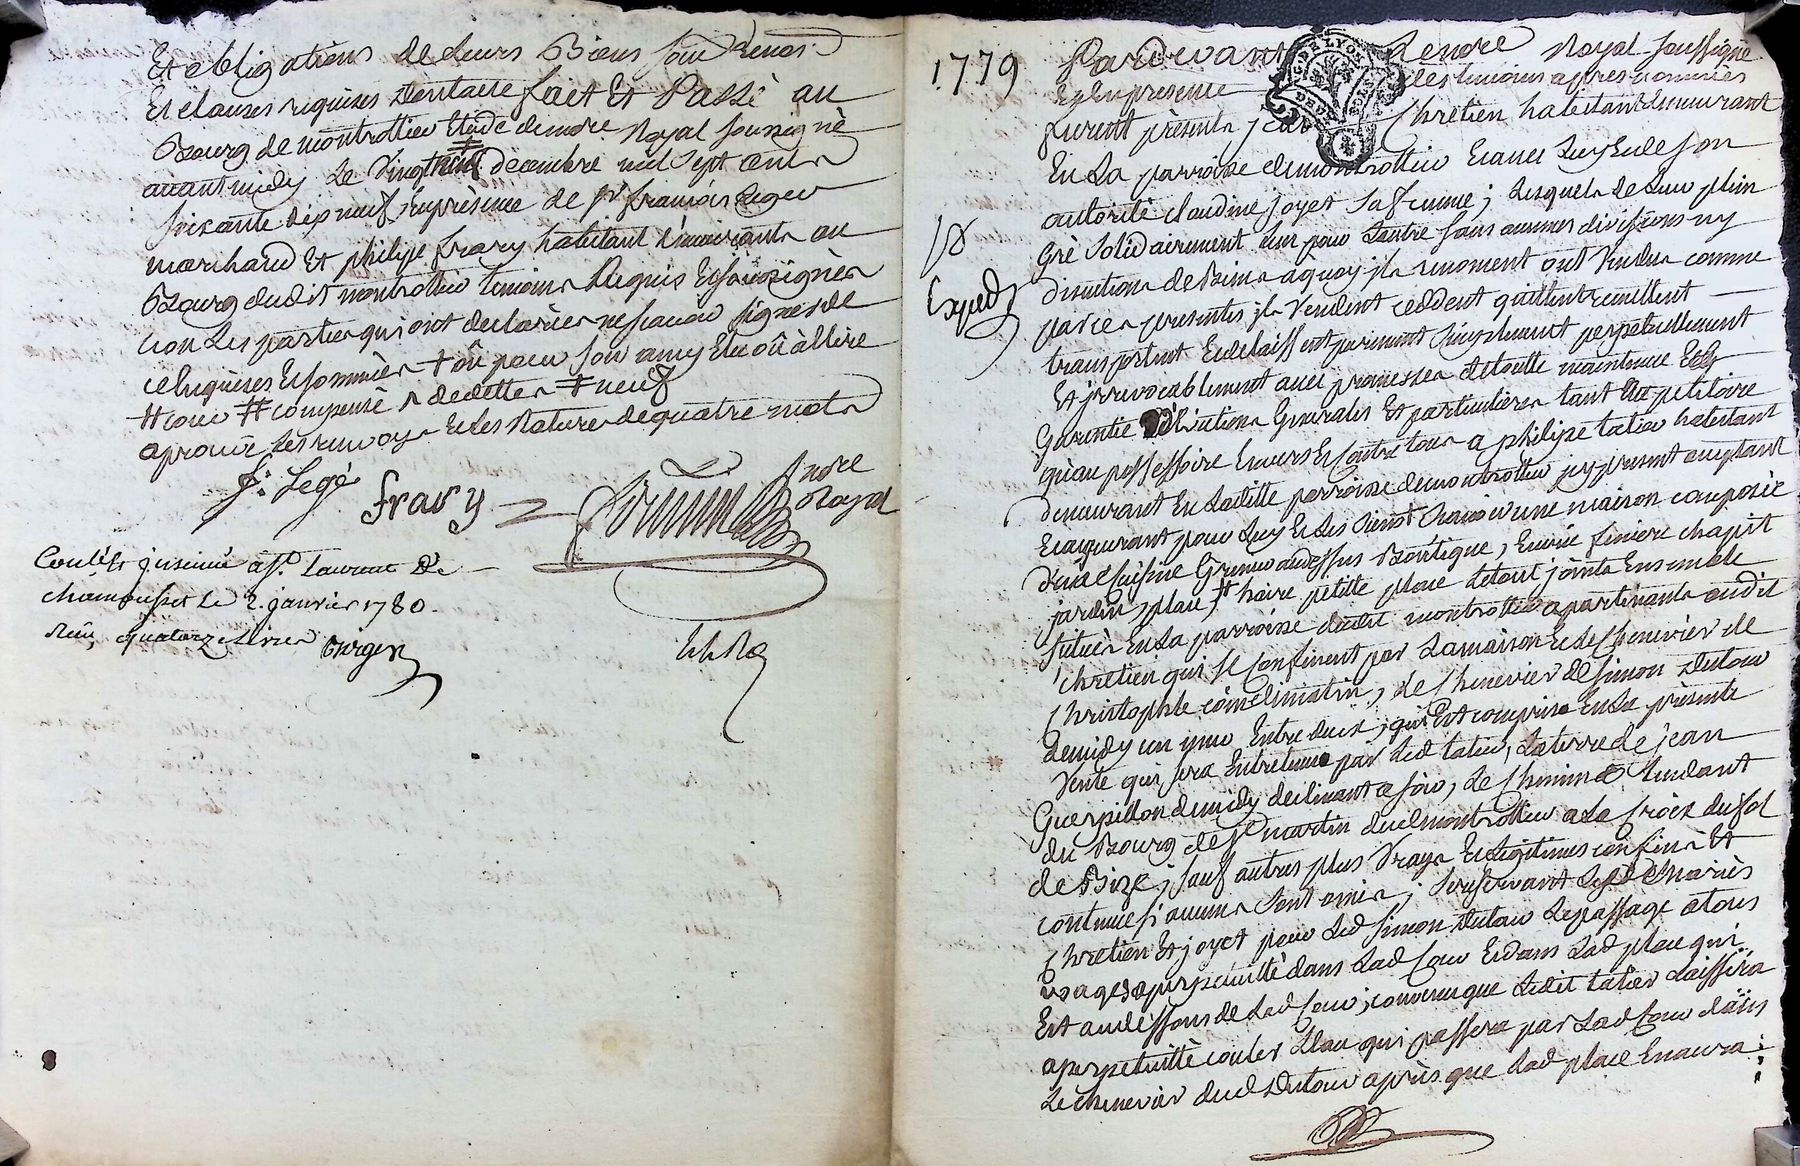 Et obligations de leurs Biens soum Renon
Et clauses requises dentatte fait Et Passé au
Bourg de montrottier Etude denore Royal soussigné
avant midy Le vingt neuf decembre mil sept cents
soixante dix neuf, En présence de sr francois Leger
marchand Et philipe frary habitant demeurants au
Bourg dudit montrottier temoins Requis Et soussignés
non Les parties qui ont declarées ne scavoir signer de
ce Enquises Et sommées + où pour son amy Elu où à Elire
# cour # compensé ^ de dettes ‡ neuf
aprouvé Les renvoys Et Les Rature de quatre mots
fr. Legé
frary
nore Royal
Contlé Et insinué à St. Laurent De
chamousset Le 2. janvier 1780.
Reçu quatorze Livres
1779
Pardevant Le nore Royal soussigné
Et En presence des temoins apres nommés
furent présents jean Chretien habitant demeurant
En La parroisse de montrottier Et avec Luy Et de son
autorité claudine joyet sa femme; Lesquels de Leur plein
Gré solidairement L'un pour L'autre sans aucunes divisions ny
discutions de Biens a quoy jls renoncent ont vendus comme
par ces presentes jls vendent ceddent quittent remettent
transportent Et delaissent purement simplement perpetuellement
Et jrrevocablement avec promesses de toutte maintenue Et
Garentie Evictions Generales Et particulières tant au petitoire
qu'au possessoire Envers Et Contre tous a philipe tatier habitant
Exped
demeurant En Laditte parroisse de montrottier jcy present acceptant
Et aquerant pour Luy Et Les siens scavoir une maison composée
d'une Cuisine Grenier au dessus Boutique, Ecurie feniere chapit
jardin, place, # haire petitte place Le tout joints Ensemble
situés En La parroisse dudit montrottier apartenants audit
Chretien qui se Confinent par La maison Et Le Chenevier de
Christophle de matin, Le Chenevier de simon dutour
de midy un mur Entre deux, qui Est comprise En La présente
vente qui sera Entretenu par Led tatier, La terre de jean
Guerpillon de midy declinant a soir, Le Chemin tendant
du Bourg de St martin dud montrottier a La Croix du sol
de Bize, sauf autres plus vrays Et Legitimes confins Et
contenue si aucuns sont omis; se reservant Lesd mariés
Chretien Et joyet pour Led simon dutour Le passage a tous
usages a perpetuitté dans Lad Cour Et dans Lad place qui
Est au dessous de Lad Cour; convenu que Ledit tatier Laissera
a perpetuitté couler L'eau qui passera par Lad Cour dans
Le chenevier dud dutour après que Lad place En aura